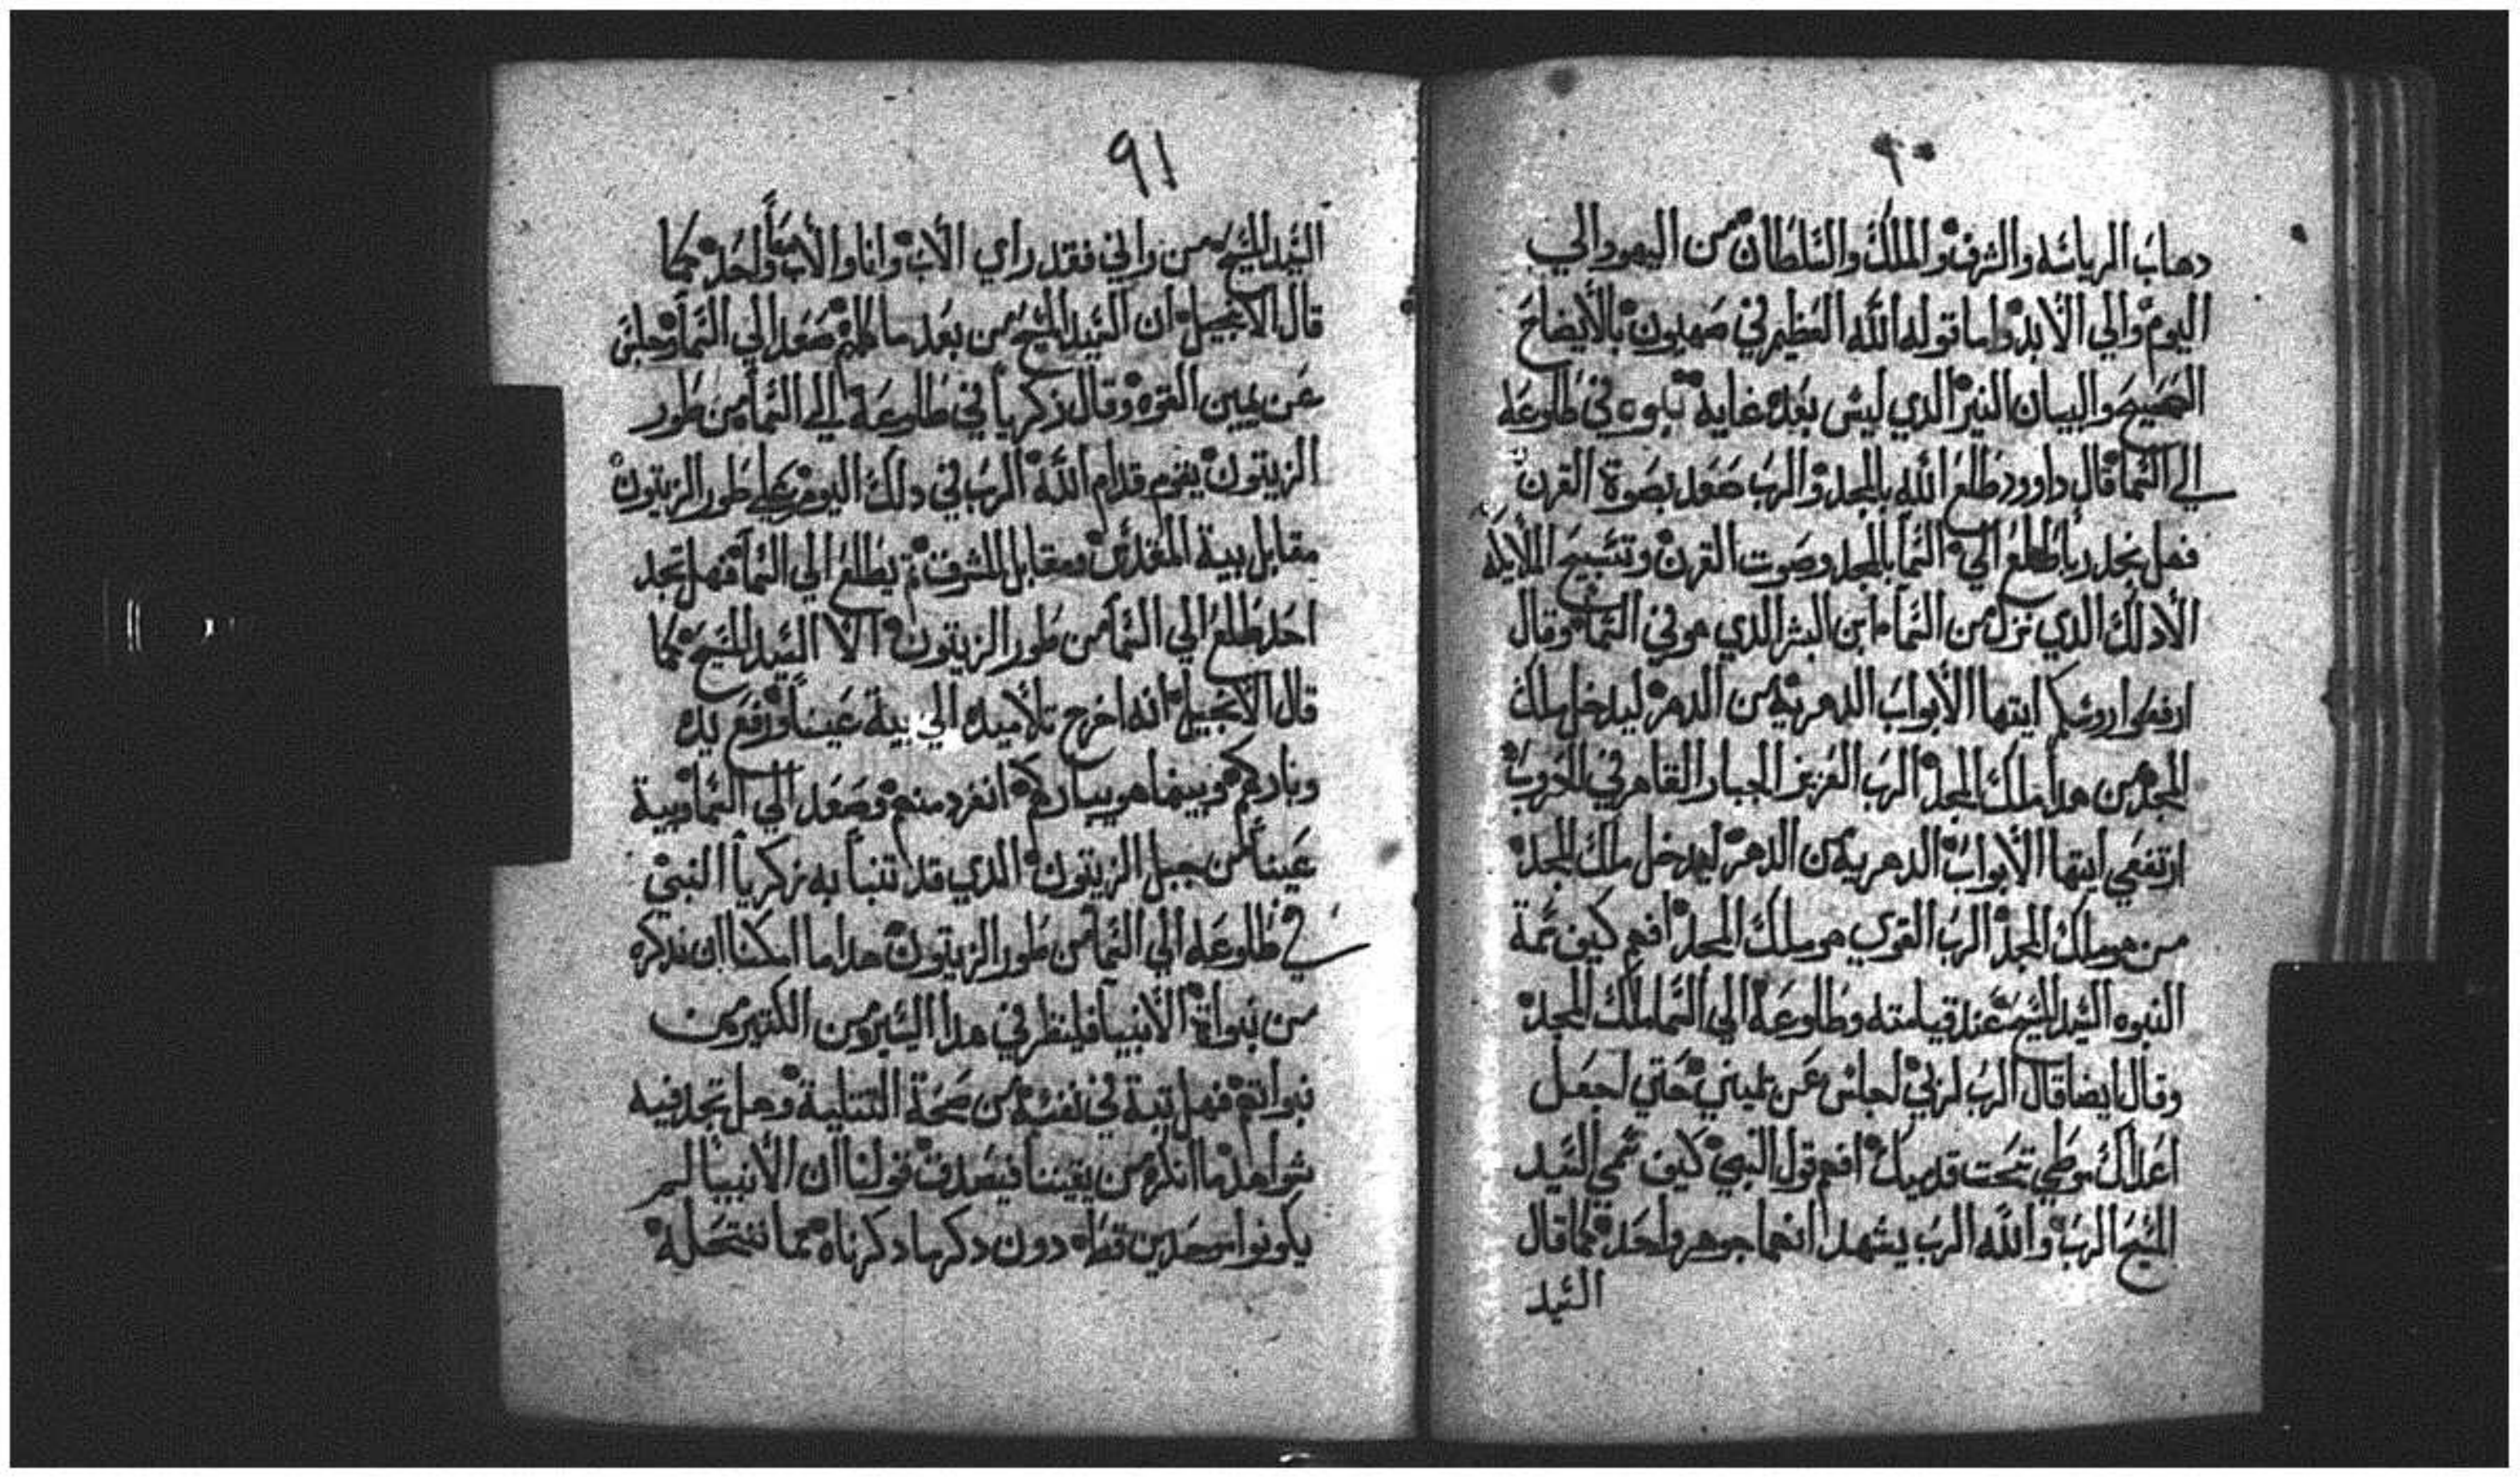 ٩٠
دهاب الرياسه والشرف والملك والسلطان من اليهود الي
اليوم والي الابد واما قوله الله العظيم في صهيون بالايضاح
الصحيح والبيان النير الدي ليس بعده غاية في طلوعه
الي السما قال داوود طلع الله بالمجد والرب صعد بصوة القرن
فهل نجد ربا طلع الي السما بالمجد وصوت القرن وتسبيح الملايكه
الا دلك الدي نزل من السماء ابن البشر الدي هو في السما وقال
ارفعوا روسكم ايتها الأبواب الدهرية من الدهر ليدخل ملك
المجد من هدا ملك المجد الرب العزيز الجبار القاهر في الحروب
ارتفعي ايتها الأبواب الدهرية من الدهر ليدخل ملك المجد
من هو ملك المجد الرب القوي هو ملك المجد افهم كيف تمة
النبوه السيد المسيح عند قيامته وطلوعه الي السما ملك المجد
وقال ايضا قال الرب لربي اجلس عن يميني حتي اجعل
اعداك موطي تحت قدميك افهم قول النبي كيف سمي السيد
المسيح الرب والله الرب يشهد انهما جوهر واحد كما قال
السيد
٩١
السيد المسيح من راني فقد راي الاب وانا والأب واحد كما
قال الانجيل ان السيد المسيح من بعد ما كلمهم صعد الي السما وجلس
عن يمين القوه وقال زكريا في طلوعه الي السما من طور
الزيتون يقوم قدام الله الرب في دلك اليوم علي طور الزيتون
مقابل بية المقدس ومقابل المشرق ثم يطلع الي السما فهل تجد
احد طلع الي السما من طور الزيتون الا السيد المسيح كما
قال الانجيل انه اخرج تلاميده الي بية عنيا ورفع يده
وباركهم وبينما هو يباركهم انفرد منهم وصعد الي السما وبية
عنيا من جبل الزيتون الدي قد تنبا به زكريا النبي
في طلوعه الي السما من طور الزيتون هدا ما امكننا ان ندكره
من نبواة الأنبيا فلينظر في هدا اليسير من الكتير من
نبواتهم فهل تبة في نفسه من صحة التتلية وهل تجد فيه
شواهد ما انكره من يقيننا فيصدق قولنا ان الأنبيا لم
يكونوا موحدين قط دون دكر ما دكرناه مما ننتحله